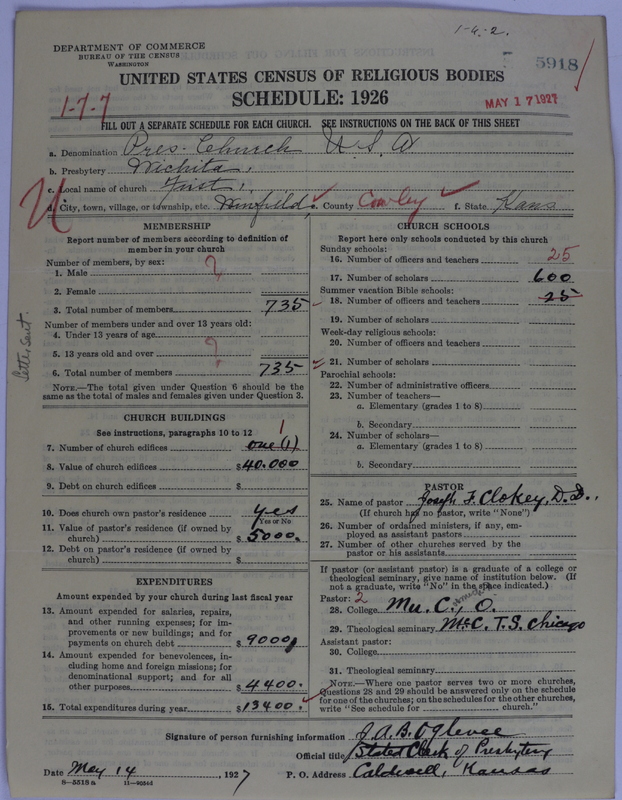 1-4-2
DEPARTMENT OF COMMERCE
BUREAU OF THE CENSUS
WASHINGTON
5918
UNITED STATES CENSUS OF RELIGIOUS BODIES
SCHEDULE: 1926
1-7-7
MAY 17 1927
FILL OUT A SEPARATE SCHEDULE FOR EACH CHURCH. SEE INSTRUCTIONS ON THE BACK OF THIS SHEET
a. Denomination Pres. Church U S A
b. Presbytery Wichita
c. Local name of church First
d. City, town, village, or township, etc. Winfield e. County Cowley f. State Kans
letter sent.
MEMBERSHIP
Report number of members according to definition of
member in your church
Number of members, by sex:
1. Male ?
2. Female
3. Total number of members 735
Number of members under and over 13 years old:
4. Under 13 years of age
5. 13 years old and over ?
6. Total number of members 735
NOTE.—The total given under Question 6 should be the
same as the total of males and females given under Question 3.
CHURCH BUILDINGS
See instructions, paragraphs 10 to 12
1
7. Number of church edifices one (1)
8. Value of church edifices $40.000
9. Debt on church edifices $
10. Does church own pastor's residence yes
Yes or No
11. Value of pastor's residence (if owned by
church) $5000.
12. Debt on pastor's residence (if owned by
church) $
EXPENDITURES
Amount expended by your church during last fiscal year
13. Amount expended for salaries, repairs,
and other running expenses; for im-
provements or new buildings; and for
payments on church debt $9000
14. Amount expended for benevolences, in-
cluding home and foreign missions; for
denominational support; and for all
other purposes $4400.
15. Total expenditures during year $13400.
CHURCH SCHOOLS
Report here only schools conducted by this church
Sunday schools:
16. Number of officers and teachers 25
17. Number of scholars 600
Summer vacation Bible schools:
18. Number of officers and teachers 25
19. Number of scholars
Week-day religious schools:
20. Number of officers and teachers
21. Number of scholars
Parochial schools:
22. Number of administrative officers
23. Number of teachers—
a. Elementary (grades 1 to 8)
b. Secondary
24. Number of scholars—
a. Elementary (grades 1 to 8)
b. Secondary
PASTOR
25. Name of pastor Joseph F. Clokey, D.D.,
(If church has no pastor, write "None")
26. Number of ordained ministers, if any, em-
ployed as assistant pastors
27. Number of other churches served by the
pastor or his assistants
If pastor (or assistant pastor) is a graduate of a college or
theological seminary, give name of institution below. (If
not a graduate, write "No" in the space indicated.)
Pastor: 2
28. College Mu. C., O.
29. Theological seminary McC. T.S. Chicago
Assistant pastor:
30. College
31. Theological seminary
NOTE.—Where one pastor serves two or more churches,
Questions 28 and 29 should be answered only on the schedule
for one of the churches; on the schedules for the other churches,
write "See schedule for church."
Signature of person furnishing information J. A. B. Oglevee
Official title Stated Clerk of Presbytery
Date May 14, 1927 P. O. Address Caldwell, Kansas
8—5518a 11—9254d